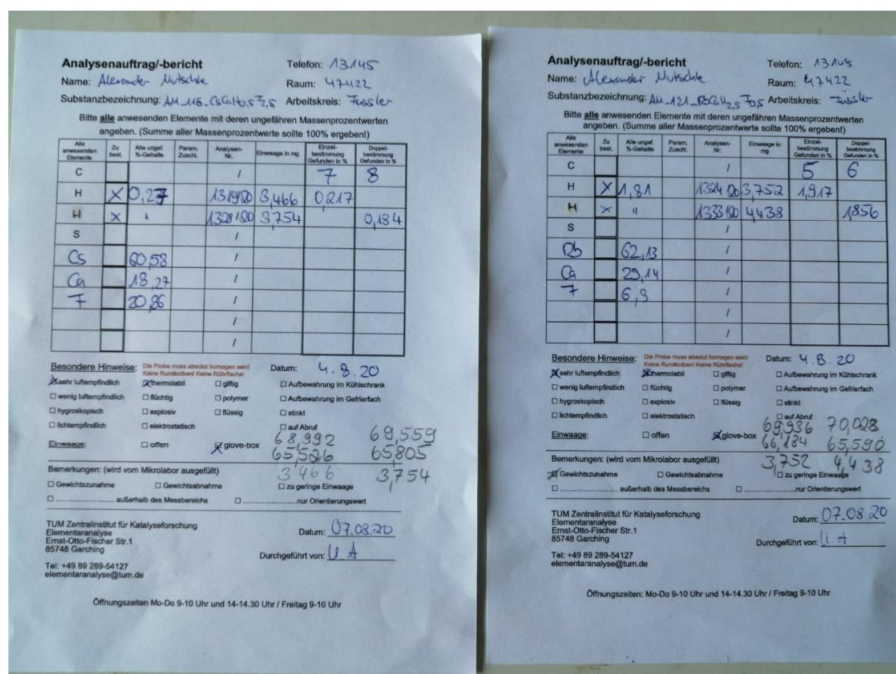 Analysenauftrag/-bericht
Telefon: 13145
Name: Alexander Mutschke
Raum: 47422
Substanzbezeichnung: AM_116_CsCaH0,5F2,5 Arbeitskreis: Fässler
Bitte alle anwesenden Elemente mit deren ungefähren Massenprozentwerten
angeben. (Summe aller Massenprozentwerte sollte 100% ergeben!)
Alle anwesenden Elemente Zu best. Alle ungef. %-Gehalte Param. Zuscht. Analysen-Nr. Einwaage in mg Einzel-bestimmung Gefunden in % Doppel-bestimmung Gefunden in %
C / 7 8
H X 0,27 1319/20 3,466 0,217
H X " 1328/20 3,754 0,184
S /
Cs 60,58 /
Ca 18,27 /
F 20,86 /
/
/
Besondere Hinweise: Die Probe muss absolut homogen sein! Keine Rundkolben! Keine Rührfische!
Datum: 4.8.20
X sehr luftempfindlich X thermolabil □ giftig □ Aufbewahrung im Kühlschrank
□ wenig luftempfindlich □ flüchtig □ polymer □ Aufbewahrung im Gefrierfach
□ hygroskopisch □ explosiv □ flüssig □ stinkt
□ lichtempfindlich □ elektrostatisch □ auf Abruf
68,992 69,559
Einwaage: □ offen X glove-box 65,526 65805
Bemerkungen: (wird vom Mikrolabor ausgefüllt) 3,466 3,754
□ Gewichtszunahme □ Gewichtsabnahme □ zu geringe Einwaage
□ ................ außerhalb des Messbereichs □ ................nur Orientierungswert
TUM Zentralinstitut für Katalyseforschung
Elementaranalyse
Ernst-Otto-Fischer Str.1
85748 Garching
Datum: 07.08.20
Durchgeführt von: U A
Tel: +49 89 289-54127
elementaranalyse@tum.de
Öffnungszeiten Mo-Do 9-10 Uhr und 14-14.30 Uhr / Freitag 9-10 Uhr
Analysenauftrag/-bericht
Telefon: 13145
Name: Alexander Mutschke
Raum: 47422
Substanzbezeichnung: AM_121_RbCaH2,5F0,5 Arbeitskreis: Fässler
Bitte alle anwesenden Elemente mit deren ungefähren Massenprozentwerten
angeben. (Summe aller Massenprozentwerte sollte 100% ergeben!)
Alle anwesenden Elemente Zu best. Alle ungef. %-Gehalte Param. Zuscht. Analysen-Nr. Einwaage in mg Einzel-bestimmung Gefunden in % Doppel-bestimmung Gefunden in %
C / 5 6
H X 1,81 1324/20 3,752 1,917
H X " 1333/20 4,438 1,856
S /
Rb 62,13 /
Ca 29,14 /
F 6,9 /
/
/
Besondere Hinweise: Die Probe muss absolut homogen sein! Keine Rundkolben! Keine Rührfische!
Datum: 4.8.20
X sehr luftempfindlich X thermolabil □ giftig □ Aufbewahrung im Kühlschrank
□ wenig luftempfindlich □ flüchtig □ polymer □ Aufbewahrung im Gefrierfach
□ hygroskopisch □ explosiv □ flüssig □ stinkt
□ lichtempfindlich □ elektrostatisch □ auf Abruf
69,936 70,028
Einwaage: □ offen X glove-box 66,184 65,590
Bemerkungen: (wird vom Mikrolabor ausgefüllt) 3,752 4,438
X Gewichtszunahme □ Gewichtsabnahme □ zu geringe Einwaage
□ ................ außerhalb des Messbereichs □ ................nur Orientierungswert
TUM Zentralinstitut für Katalyseforschung
Elementaranalyse
Ernst-Otto-Fischer Str.1
85748 Garching
Datum: 07.08.20
Durchgeführt von: U A
Tel: +49 89 289-54127
elementaranalyse@tum.de
Öffnungszeiten: Mo-Do 9-10 Uhr und 14-14.30 Uhr / Freitag 9-10 Uhr